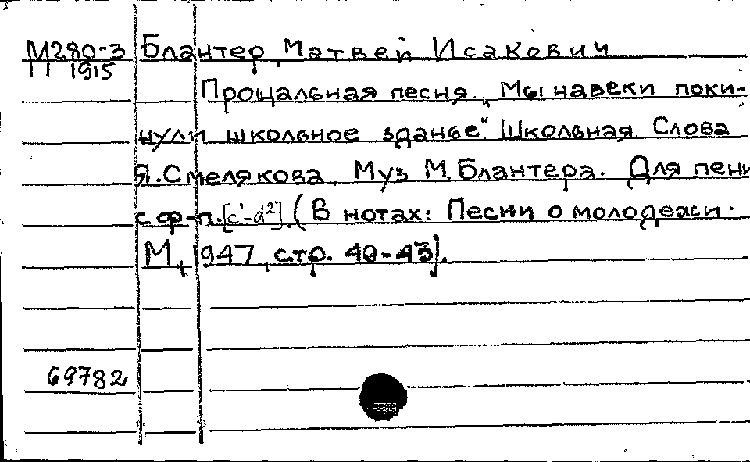 М280-3 Блантер, Матвей Исакович
11 1915
Прощальная песня. „Мы навеки поки-
нули школьное зданье". Школьная. Слова
Я. Смелякова. Муз. М. Блантера. Для пени
с ф-п. [c'-d²]. (В нотах: Песни о молодежи.
М., 1947, стр. 40-43).
69782